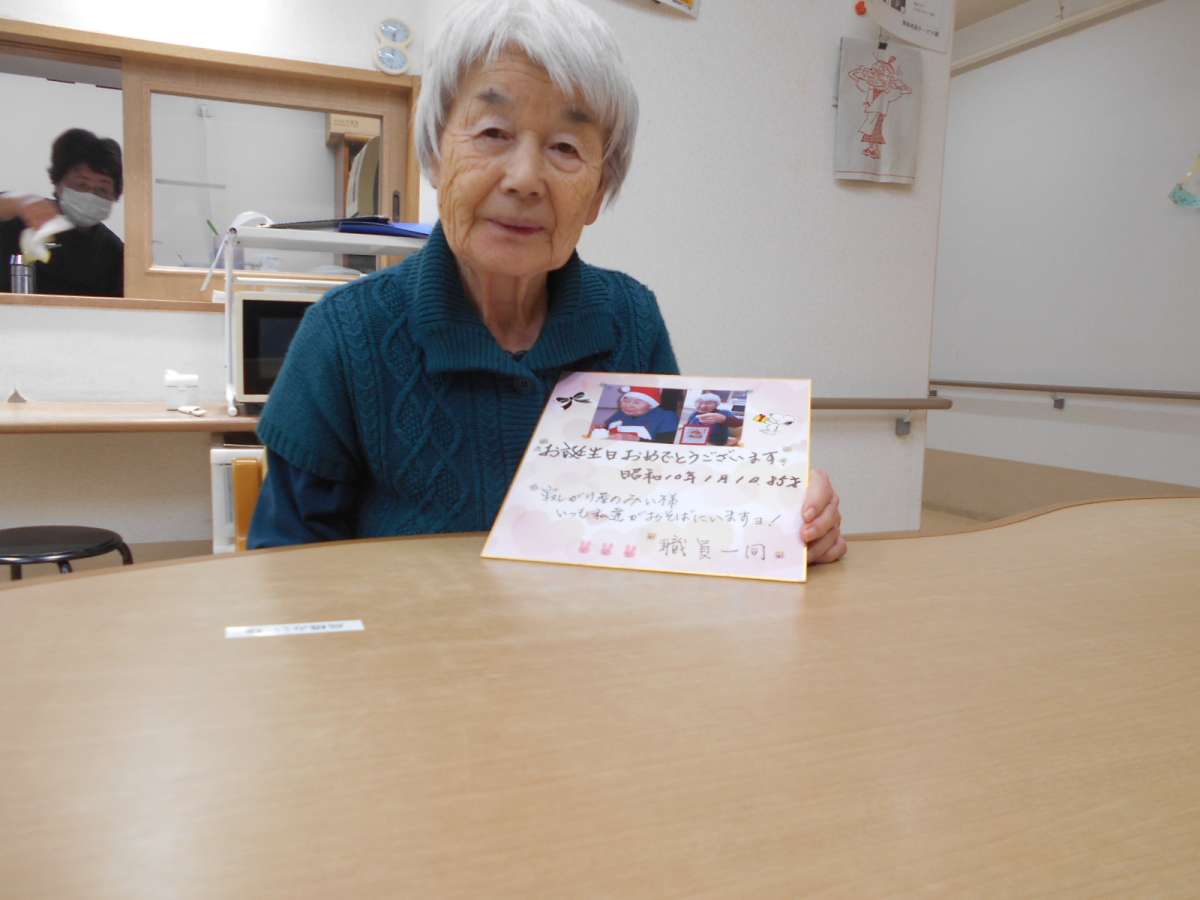 お誕生日おめでとうございます。
昭和10年1月1日 85才
寂しがり屋のみい様
いつも私達がおそばにいますヨ!
職員一同